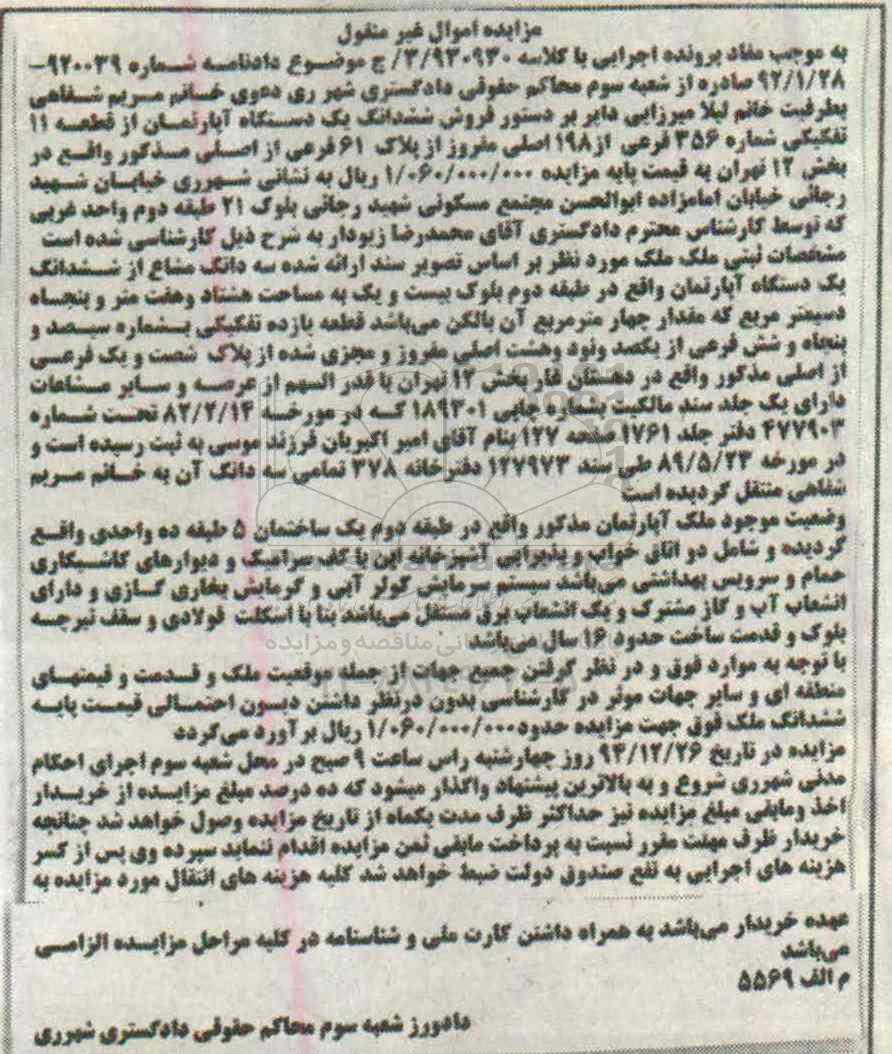 مزایده اموال غیر منقول
به موجب مفاد پرونده اجرایی با کلاسه ۳/۹۳۰۹۳۰/ ج موضوع دادنامه شماره ۹۲۰۰۳۹-
۹۲/۱/۲۸ صادره از شعبه سوم محاکم حقوقی دادگستری شهر ری دعوی خانم مریم شفاهی
بطرفیت خانم لیلا میرزایی دایر بر دستور فروش ششدانگ یک دستگاه آپارتمان از قطعه ۱۱
تفکیکی شماره ۳۵۶ فرعی از۱۹۸ اصلی مفروز از پلاک ۶۱ فرعی از اصلی مذکور واقع در
بخش ۱۲ تهران به قیمت پایه مزایده ۱/۰۶۰/۰۰۰/۰۰۰ ریال به نشانی شهرری خیابان شهید
رجائی خیابان امامزاده ابوالحسن مجتمع مسکونی شهید رجائی بلوک ۲۱ طبقه دوم واحد غربی
که توسط کارشناس محترم دادگستری آقای محمدرضا زیودار به شرح ذیل کارشناسی شده است
مشخصات ثبتی ملک ملک مورد نظر بر اساس تصویر سند ارائه شده سه دانگ مشاع از ششدانگ
یک دستگاه آپارتمان واقع در طبقه دوم بلوک بیست و یک به مساحت هشتاد وهفت متر و پنجاه
دسیمتر مربع که مقدار چهار مترمربع آن بالکن می‌باشد قطعه یازده تفکیکی بشماره سیصد و
پنجاه و شش فرعی از یکصد ونود وهشت اصلی مفروز و مجزی شده از پلاک شصت و یک فرعی
از اصلی مذکور واقع در دهستان غار بخش ۱۲ تهران با قدر السهم از عرصه و سایر مشاعات
دارای یک جلد سند مالکیت بشماره چاپی ۱۸۹۳۰۱ که در مورخه ۸۲/۲/۱۴ تحت شماره
۴۷۷۹۰۳ دفتر جلد ۱۷۶۱ صفحه ۱۲۷ بنام آقای امیر اکبریان فرزند موسی به ثبت رسیده است و
در مورخه ۸۹/۵/۲۳ طی سند ۱۲۷۹۷۳ دفترخانه ۳۷۸ تمامی سه دانگ آن به خانم مریم
شفاهی منتقل گردیده است
وضعیت موجود ملک آپارتمان مذکور واقع در طبقه دوم یک ساختمان ۵ طبقه ده واحدی واقع
گردیده و شامل دو اتاق خواب و پذیرایی آشپزخانه اپن با کف سرامیک و دیوارهای کاشیکاری
حمام و سرویس بهداشتی می‌باشد سیستم سرمایش کولر آبی و گرمایش بخاری گازی و دارای
انشعاب آب و گاز مشترک و یک انشعاب برق مستقل می‌باشد بنا با اسکلت فولادی و سقف تیرچه
بلوک و قدمت ساخت حدود ۱۶ سال می‌باشد
با توجه به موارد فوق و در نظر گرفتن جمیع جهات از جمله موقعیت ملک و قدمت و قیمتهای
منطقه ای و سایر جهات موثر در کارشناسی بدون درنظر داشتن دیون احتمالی قیمت پایه
ششدانگ ملک فوق جهت مزایده حدود۱/۰۶۰/۰۰۰/۰۰۰ ریال بر آورد می‌گردد
مزایده در تاریخ ۹۴/۱۲/۲۶ روز چهارشنبه راس ساعت ۹ صبح در محل شعبه سوم اجرای احکام
مدنی شهرری شروع و به بالاترین پیشنهاد واگذار میشود که ده درصد مبلغ مزایده از خریدار
اخذ ومابقی مبلغ مزایده نیز حداکثر ظرف مدت یکماه از تاریخ مزایده وصول خواهد شد چنانچه
خریدار ظرف مهلت مقرر نسبت به پرداخت مابقی ثمن مزایده اقدام ننماید سپرده وی پس از کسر
هزینه های اجرایی به نفع صندوق دولت ضبط خواهد شد کلیه هزینه های انتقال مورد مزایده به
عهده خریدار می‌باشد به همراه داشتن کارت ملی و شناسنامه در کلیه مراحل مزایده الزامی
می‌باشد
م الف ۵۵۶۹
دادورز شعبه سوم محاکم حقوقی دادگستری شهرری